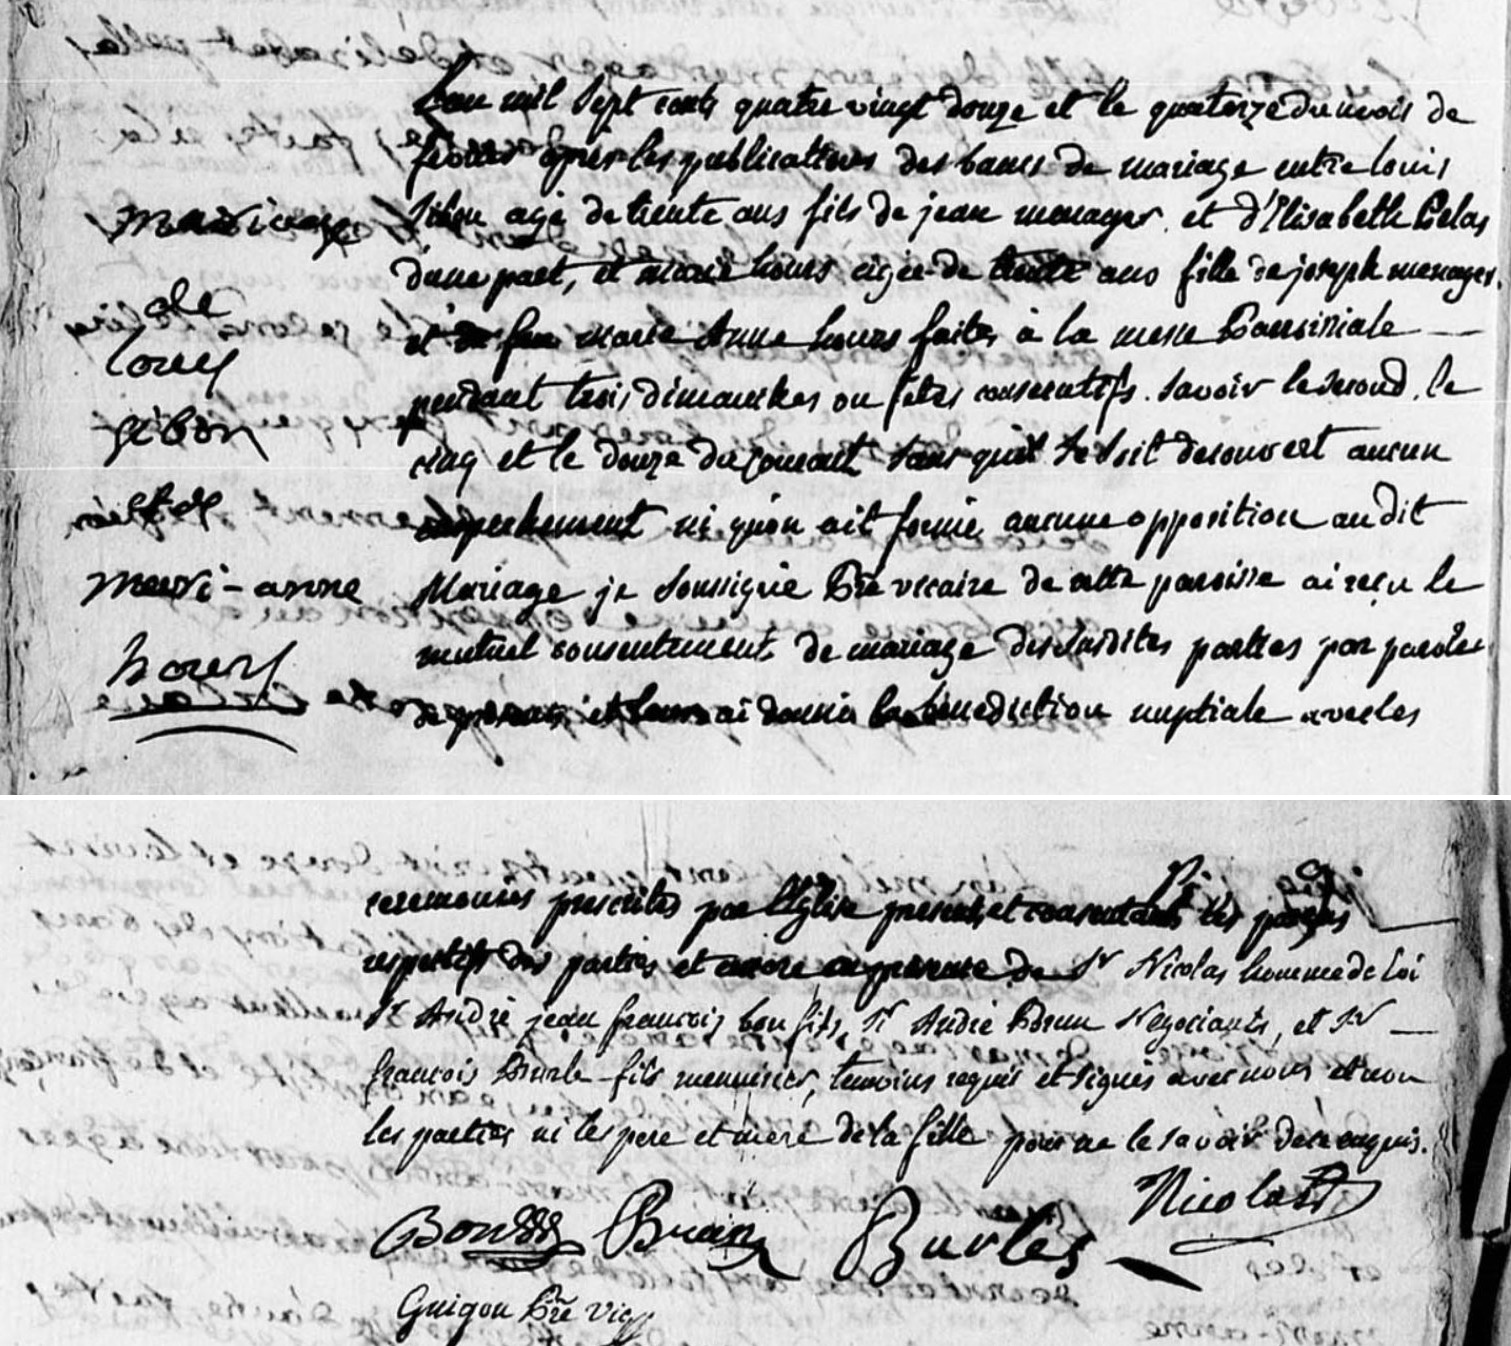 mariage
de
louis
gibon
et de
marri-anne
hours
L'an mil sept cents quatre vingt douze et le quatorze du mois de
fevrier après les publications des bancs de mariage entre louis
agé de trente ans fils de jean menager et d'Elisabeth Pelas
d'une part, et marie hours agée de trente ans fille de joseph menager
et feu marie Anne hours faites à la messe Parroissiale
pendant trois dimanches ou fetes consecutifs. savoir le second, le
cinq et le douze du courant sans qu'il se soit decouvert aucun
empechement ni qu'on ait formé aucune opposition au dit
Mariage je soussigné Ptre vicaire de cette paroisse ai reçu le
mutuel consentement de mariage des susdites parties par paroles
de present et leur ai donné la benediction nuptiale avec les
ceremonies prescrites par l'Eglise presents et consentants les
respectifs des parties et encore en presence de Sr Nicolas homme de loi
Sr André jean francois bon fils, Sr André Brun Negociants, et Sr
francois Burle fils menuisier, temoins requis et signés avec nous et non
les parties ni les pere et mere de la fille pour ne le savoir de ce enquis.
Nicolas
Brun
Burles
Guigou Ptre vic